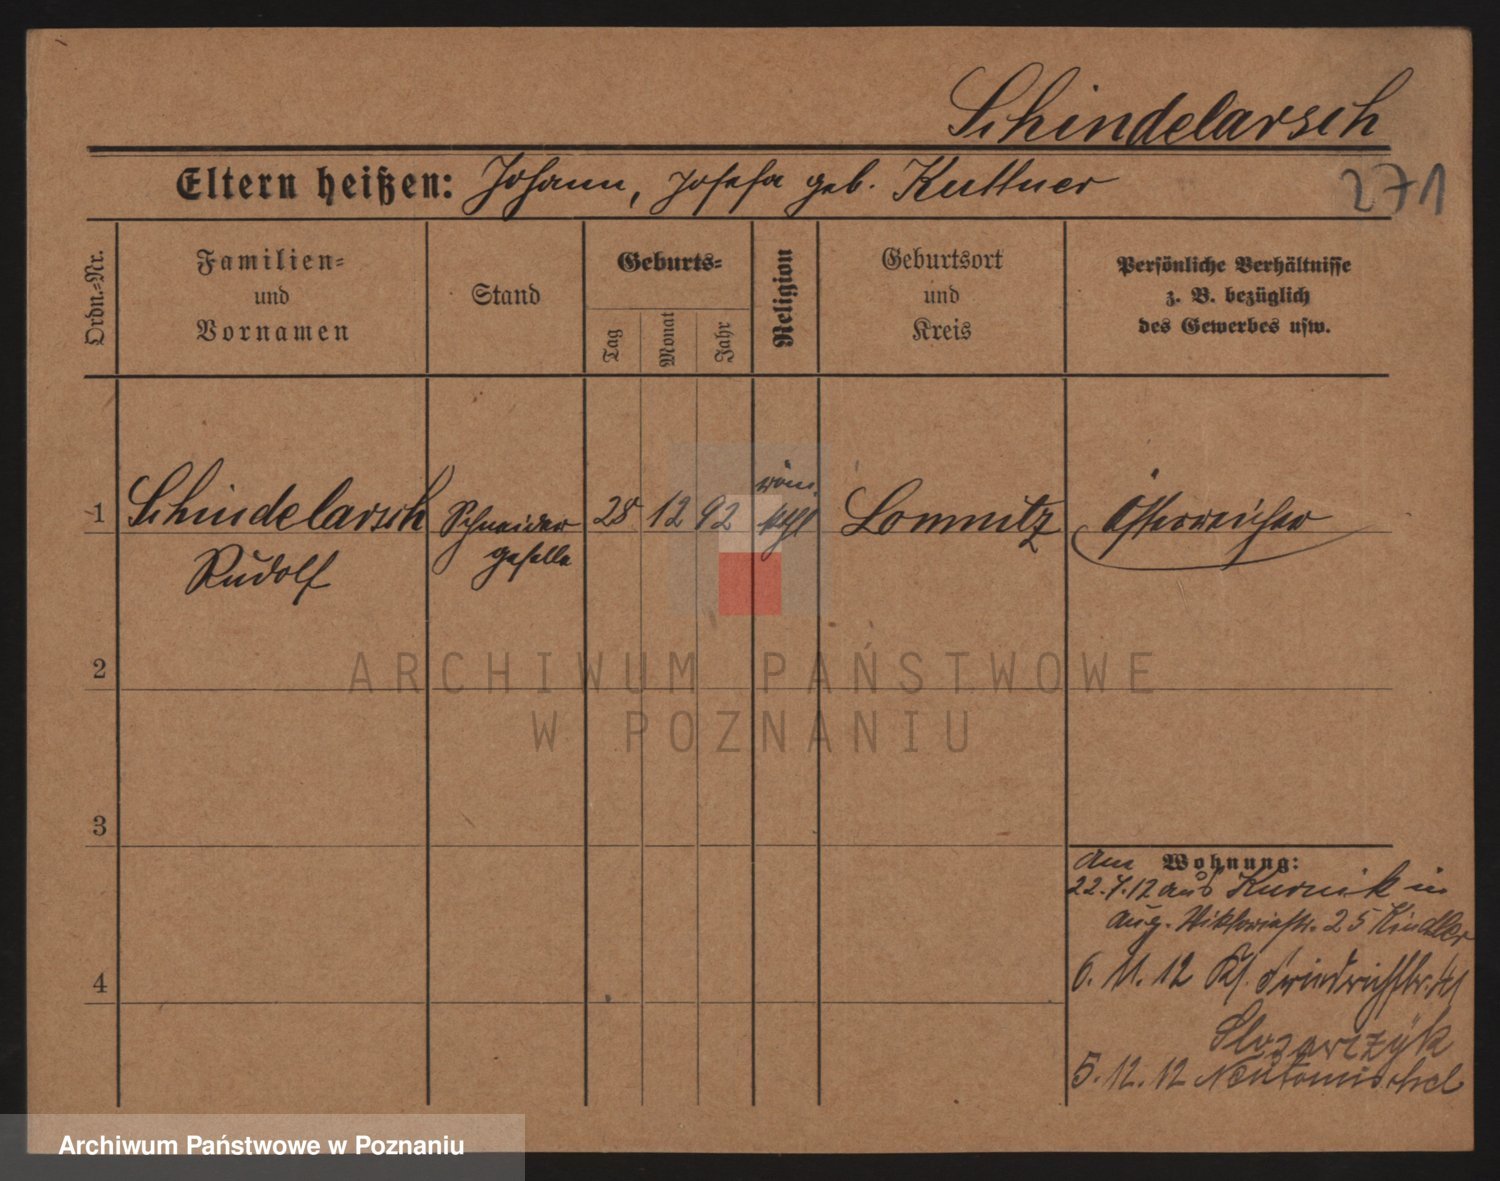 Schindelarsch
Eltern heißen: Johann, Josefa geb. Kuttner
271
Ordn.-Nr.
Familien-
und
Vornamen
Stand
Geburts-
Tag
Monat
Jahr
Religion
Geburtsort
und
Kreis
Persönliche Verhältnisse
z. B. bezüglich
des Gewerbes usw.
1 Schindelarsch Schneider 28 12 92 röm. kath Lomnitz Österreicher
Rudolf geselle
2
3
4
Wohnung:
am
22.7.12 aus Kurnik in
Aug. Viktoriastr. 25 Kindler
6. 11. 12 Kl.
5. 12. 12 Neutomischel
ARCHIWUM PAŃSTWOWE
W POZNANIU
Archiwum Państwowe w Poznaniu